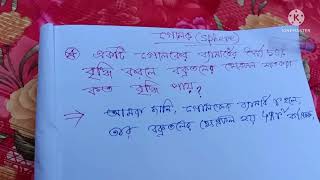 গোলক (Sphere)
একটি গোলকের ব্যাসার্ধের
বৃদ্ধি করলে বক্রতলের ক্ষেত্রফল শতকরা
কত বৃদ্ধি পায়?
⇒ আমরা জানি, গোলকের ব্যাসার্ধ r হলে,
তার বক্রতলের ক্ষেত্রফল হয় 4πr²
KINEMASTER